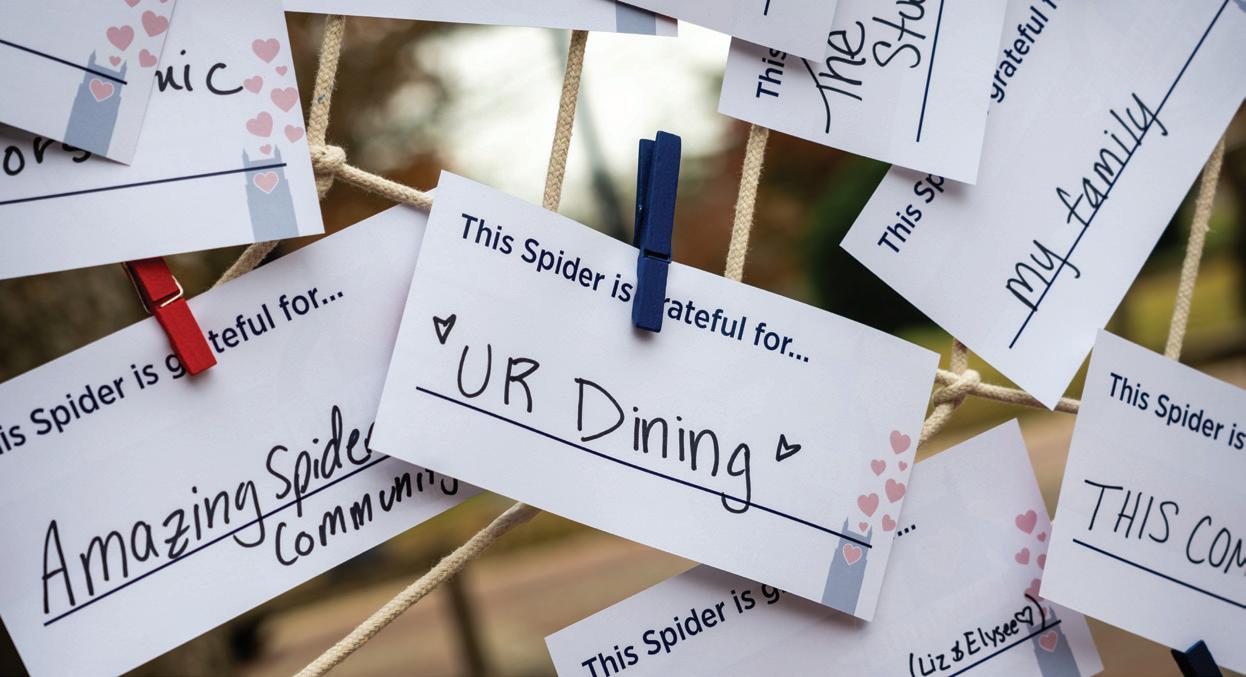 nic
ors
This
The
Stu
This Sp
grateful f
My family
This Spider is grateful for...
♡ UR Dining ♡
is Spider is g teful for...
Amazing Spider
Community
This Spider is
THIS COM
This Spider is g
...
(Liz & Elysee♡)